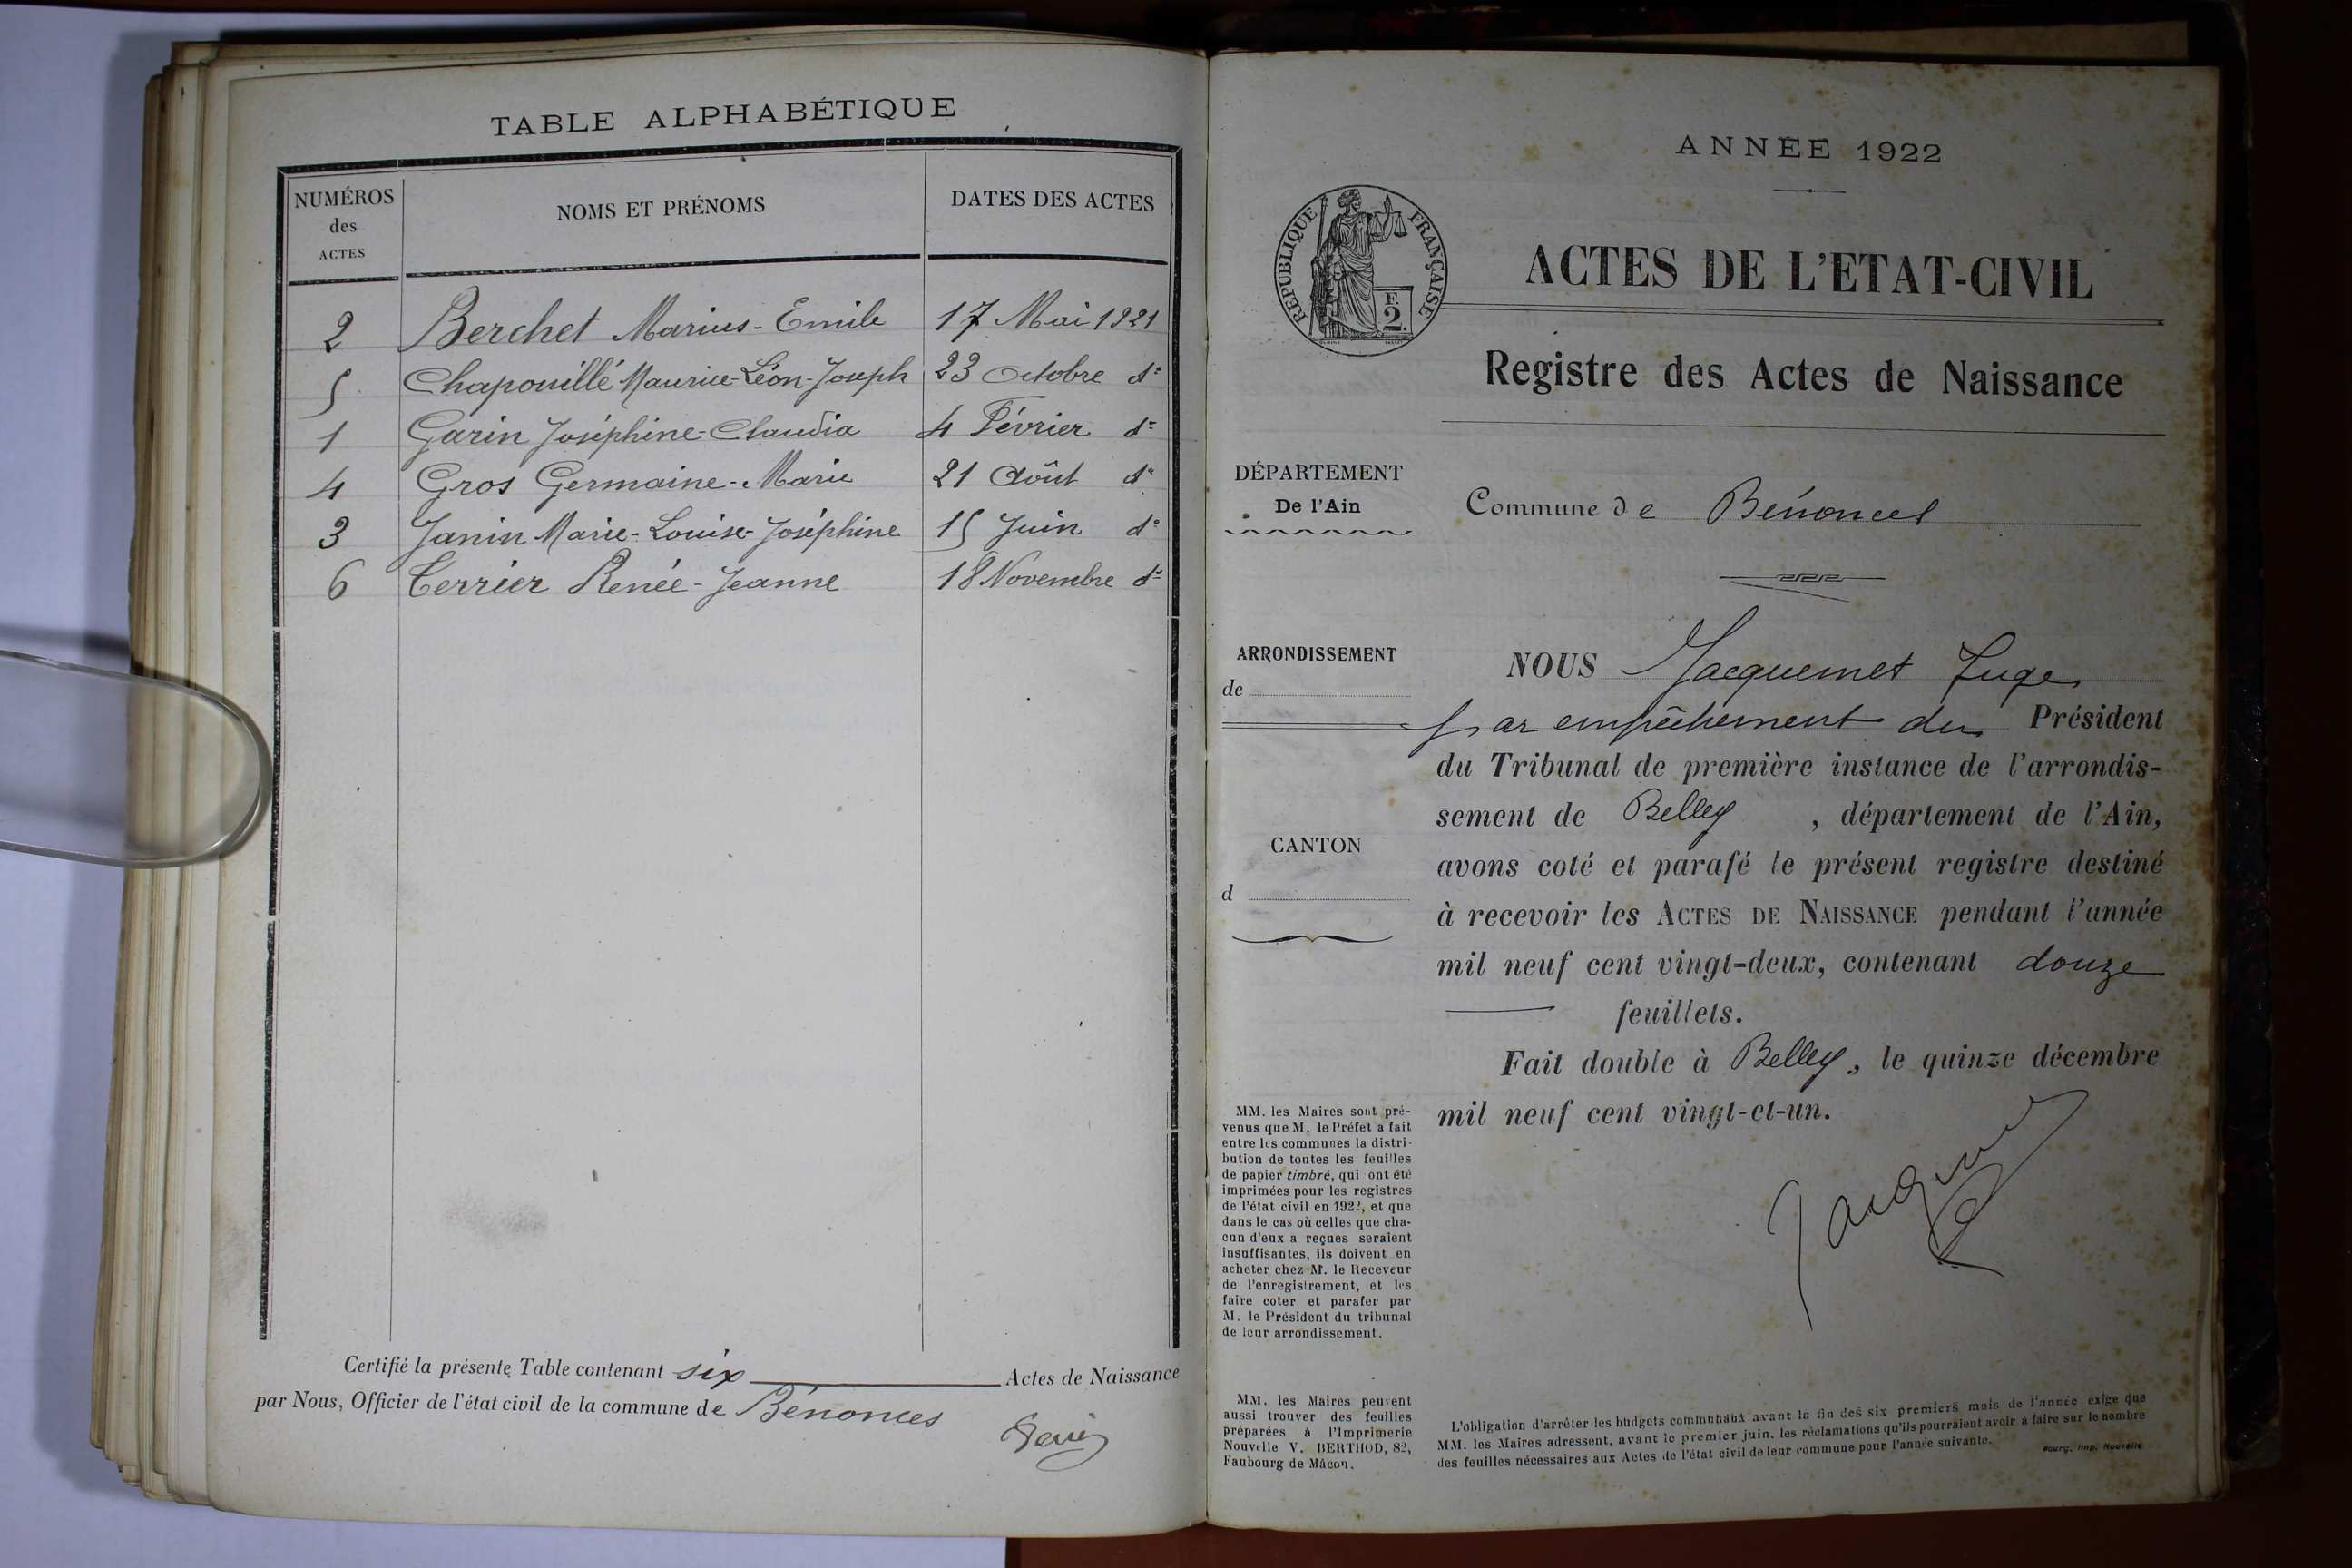 TABLE ALPHABÉTIQUE
NUMÉROS des ACTES
NOMS ET PRÉNOMS
DATES DES ACTES
2 Berchet Marius-Emile 17 Mai 1921
5 Chapouillé Maurice-Léon-Joseph 23 Octobre do
1 Garin Joséphine-Claudia 4 Février do
4 Gros Germaine-Marie 21 Août do
3 Janin Marie-Louise-Joséphine 15 Juin do
6 Terrier Renée-Jeanne 18 Novembre do
Certifié la présente Table contenant six Actes de Naissance
par Nous, Officier de l'état civil de la commune de Bénonces
ANNÉE 1922
RÉPUBLIQUE FRANÇAISE
F. 2.
ACTES DE L'ETAT-CIVIL
Registre des Actes de Naissance
DÉPARTEMENT
De l'Ain
Commune de Bénonces
ARRONDISSEMENT
de
CANTON
d
NOUS Jacquemet Juge
par empêchement du Président
du Tribunal de première instance de l'arrondis-
sement de Belley, département de l'Ain,
avons coté et parafé le présent registre destiné
à recevoir les ACTES DE NAISSANCE pendant l'année
mil neuf cent vingt-deux, contenant douze
feuillets.
Fait double à Belley, le quinze décembre
mil neuf cent vingt-et-un.
MM. les Maires sont pré-
venus que M. le Préfet a fait
entre les communes la distri-
bution de toutes les feuilles
de papier timbré, qui ont été
imprimées pour les registres
de l'état civil en 1922, et que
dans le cas où celles que cha-
cun d'eux a reçues seraient
insuffisantes, ils doivent en
acheter chez M. le Receveur
de l'enregistrement, et les
faire coter et parafer par
M. le Président du tribunal
de leur arrondissement.
MM. les Maires peuvent
aussi trouver des feuilles
préparées à l'Imprimerie
Nouvelle V. BERTHOD, 82,
Faubourg de Mâcon.
L'obligation d'arrêter les budgets communaux avant la fin des six premiers mois de l'année exige que
MM. les Maires adressent, avant le premier juin, les réclamations qu'ils pourraient avoir à faire sur le nombre
des feuilles nécessaires aux Actes de l'état civil de leur commune pour l'année suivante.
Bourg. Imp. Nouvelle